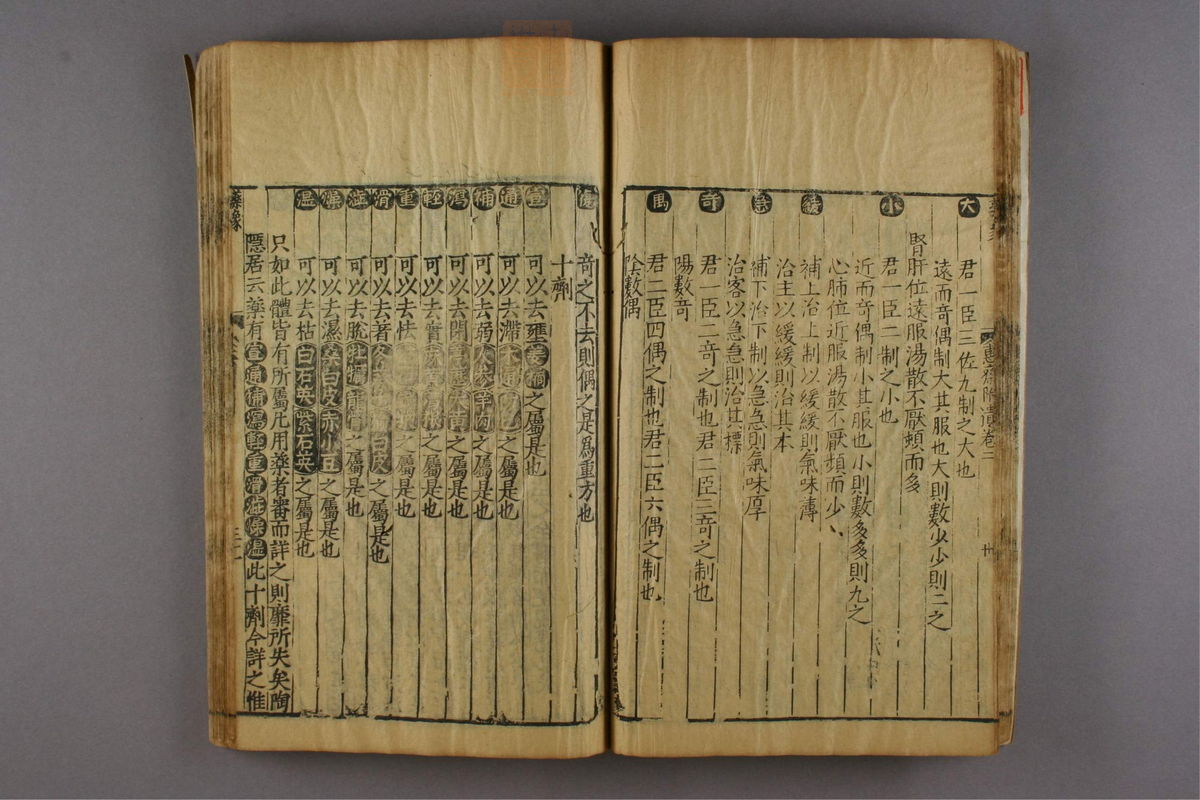 大
君一臣三佐九制之大也
遠而奇偶制大其服也大則數少少則二之
腎肝位遠服湯散不厭頻而多
小
君一臣二制之小也
近而奇偶制小其服也小則數多多則九之
心肺位近服湯散不厭頻而少
緩
補上治上制以緩緩則氣味薄
治主以緩緩則治其本
急
補下治下制以急急則氣味厚
治客以急急則治其標
奇
君一臣二奇之制也君二臣三奇之制也
陽數奇
偶
君二臣四偶之制也君二臣六偶之制也
陰數偶
復
奇之不去則偶之是為重方也
十劑
宣
可以去壅薑橘之屬是也
通
可以去滯木通防己之屬是也
補
可以去弱人參羊肉之屬是也
瀉
可以去閉葶藶大黄之屬是也
輕
可以去實麻黄葛根之屬是也
重
可以去怯之屬是也
滑
可以去著冬葵子榆白皮之屬是也
澁
可以去脱牡蠣龍骨之屬是也
燥
可以去濕桑白皮赤小豆之屬是也
温
可以去枯白石英紫石英之屬是也
只如此體皆有所屬凡用藥者審而詳之則靡所失矣陶
隱居云藥有宣通補瀉輕重滑澁燥温此十劑今詳之惟